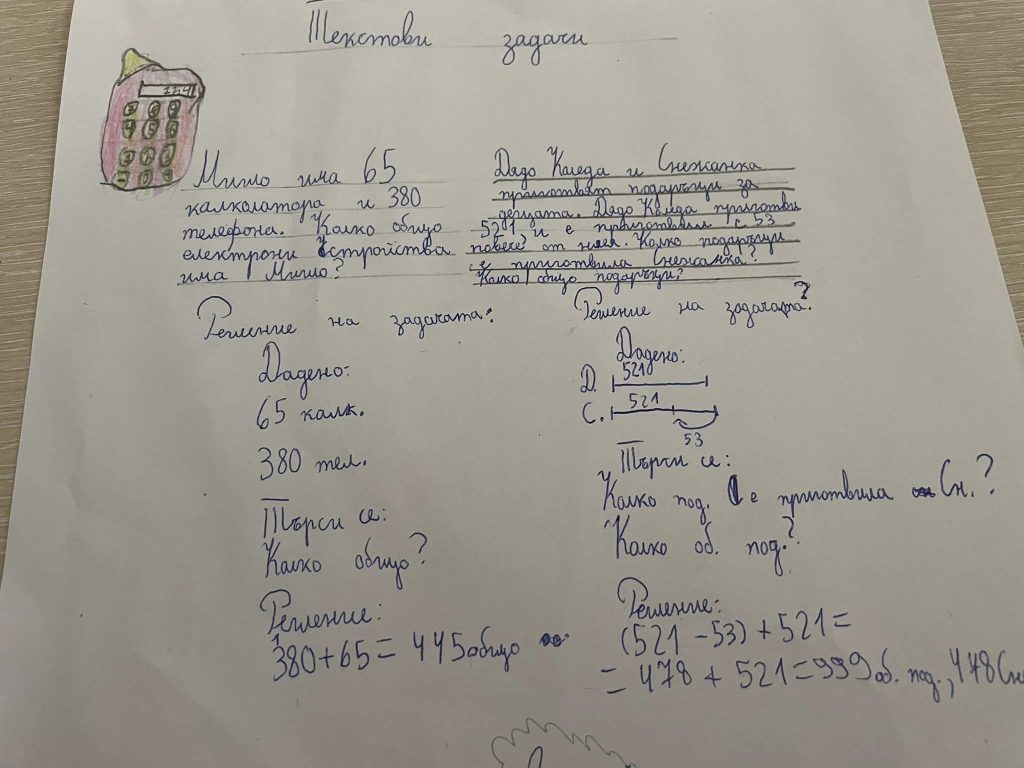 Текстови задачи
Мишо има 65
калколатора и 380
телефона. Колко общо
електрони устройства
има Мишо?
Решение на задачата:
Дадено:
65 калк.
380 тел.
Търси се:
Колко общо?
Решение:
380+65=445 общо
Дядо Коледа и Снежанка
приготвят подаръци за
децата. Дядо Коледа приготви
521 и е приготвил с 53
повече от нея. Колко подаръци
е приготвила Снежанка?
Колко общо подаръци?
Решение на задачата?
Дадено:
Д. 521
С. 521
53
Търси се:
Колко под. е приготвила Сн.?
Колко об. под.?
Решение:
(521-53)+521=
=478+521=999 об. под., 478 Сн